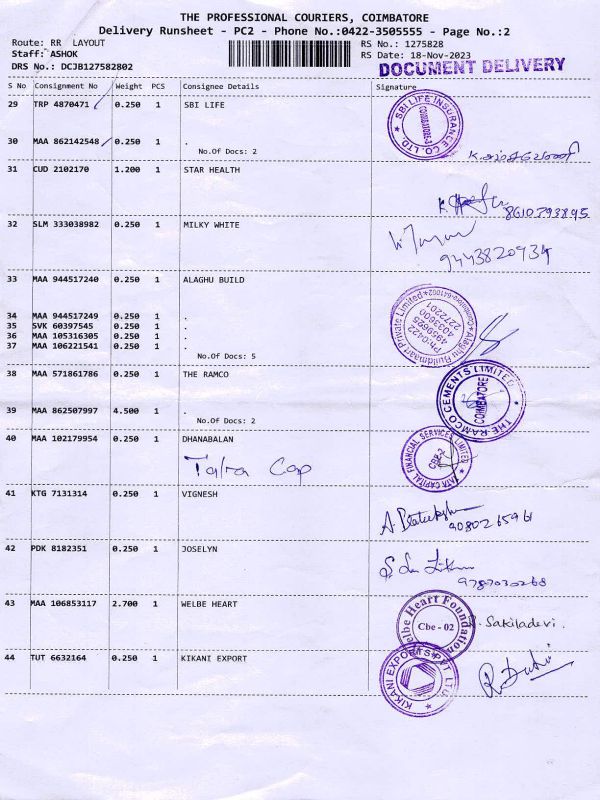 THE PROFESSIONAL COURIERS, COIMBATORE
Delivery Runsheet - PC2 - Phone No.:0422-3505555 - Page No.:2
Route: RR LAYOUT
RS No.: 1275828
Staff: ASHOK
RS Date: 18-Nov-2023
DRS No.: DCJB127582802
DOCUMENT DELIVERY
S No Consignment No Weight PCS Consignee Details Signature
29 TRP 4870471 0.250 1 SBI LIFE
SBI LIFE INSURANCE CO. LTD.
30 MAA 862142548 0.250 1 .
No.Of Docs: 2
31 CUD 2102170 1.200 1 STAR HEALTH
8610793895
32 SLM 333038982 0.250 1 MILKY WHITE
9443820934
33 MAA 944517240 0.250 1 ALAGHU BUILD
34 MAA 944517249 0.250 1 .
35 SVK 60397545 0.250 1 .
36 MAA 105316305 0.250 1 .
37 MAA 106221541 0.250 1 .
No.Of Docs: 5
38 MAA 571861786 0.250 1 THE RAMCO
THE RAMCO CEMENTS LIMITED
COIMBATORE
39 MAA 862507997 4.500 1 .
No.Of Docs: 2
40 MAA 102179954 0.250 1 DHANABALAN
Tata Cap
TATA CAPITAL FINANCIAL SERVICES LIMITED
CBE-2
41 KTG 7131314 0.250 1 VIGNESH
9080265961
42 PDK 8182351 0.250 1 JOSELYN
9787030268
43 MAA 106853117 2.700 1 WELBE HEART
Welbe Heart Foundation
Cbe - 02
Sakiladevi.
44 TUT 6632164 0.250 1 KIKANI EXPORT
KIKANI EXPORTS PVT. LTD.